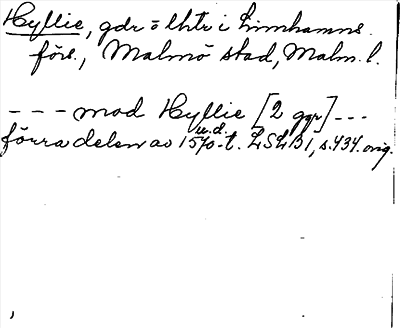 Hyllie, gdr o lhtr i Limhamns
förs., Malmö stad, Malm. l.
--- mad Hyllie [2 ggr] ---
u.d.
förra delen av 1570-t. LSLB1, s.434. orig.